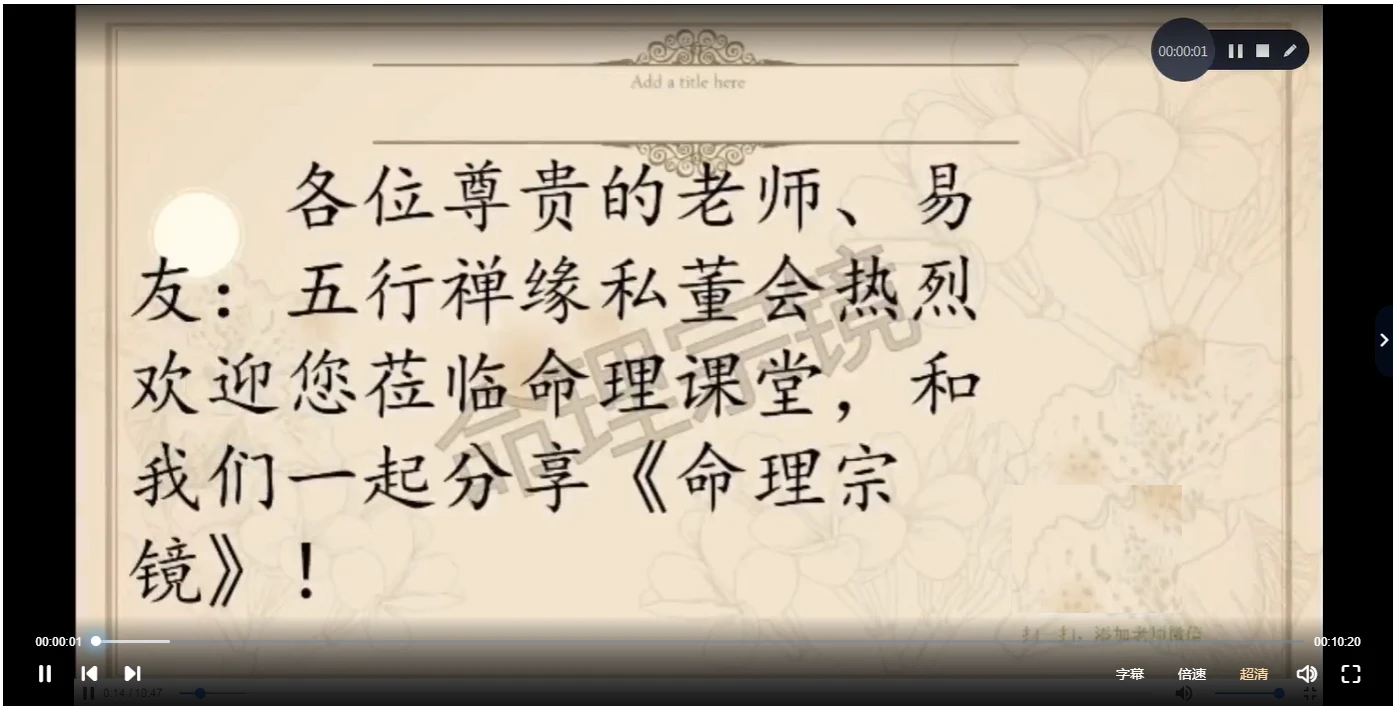 00:00:01
Add a title here
各位尊贵的老师、易
友：五行禅缘私董会热烈
欢迎您莅临命理课堂，和
我们一起分享《命理宗
镜》！
命理宗镜
扫一扫，添加老师微信
00:00:01
00:10:20
字幕 倍速 超清
0:14 / 10:47